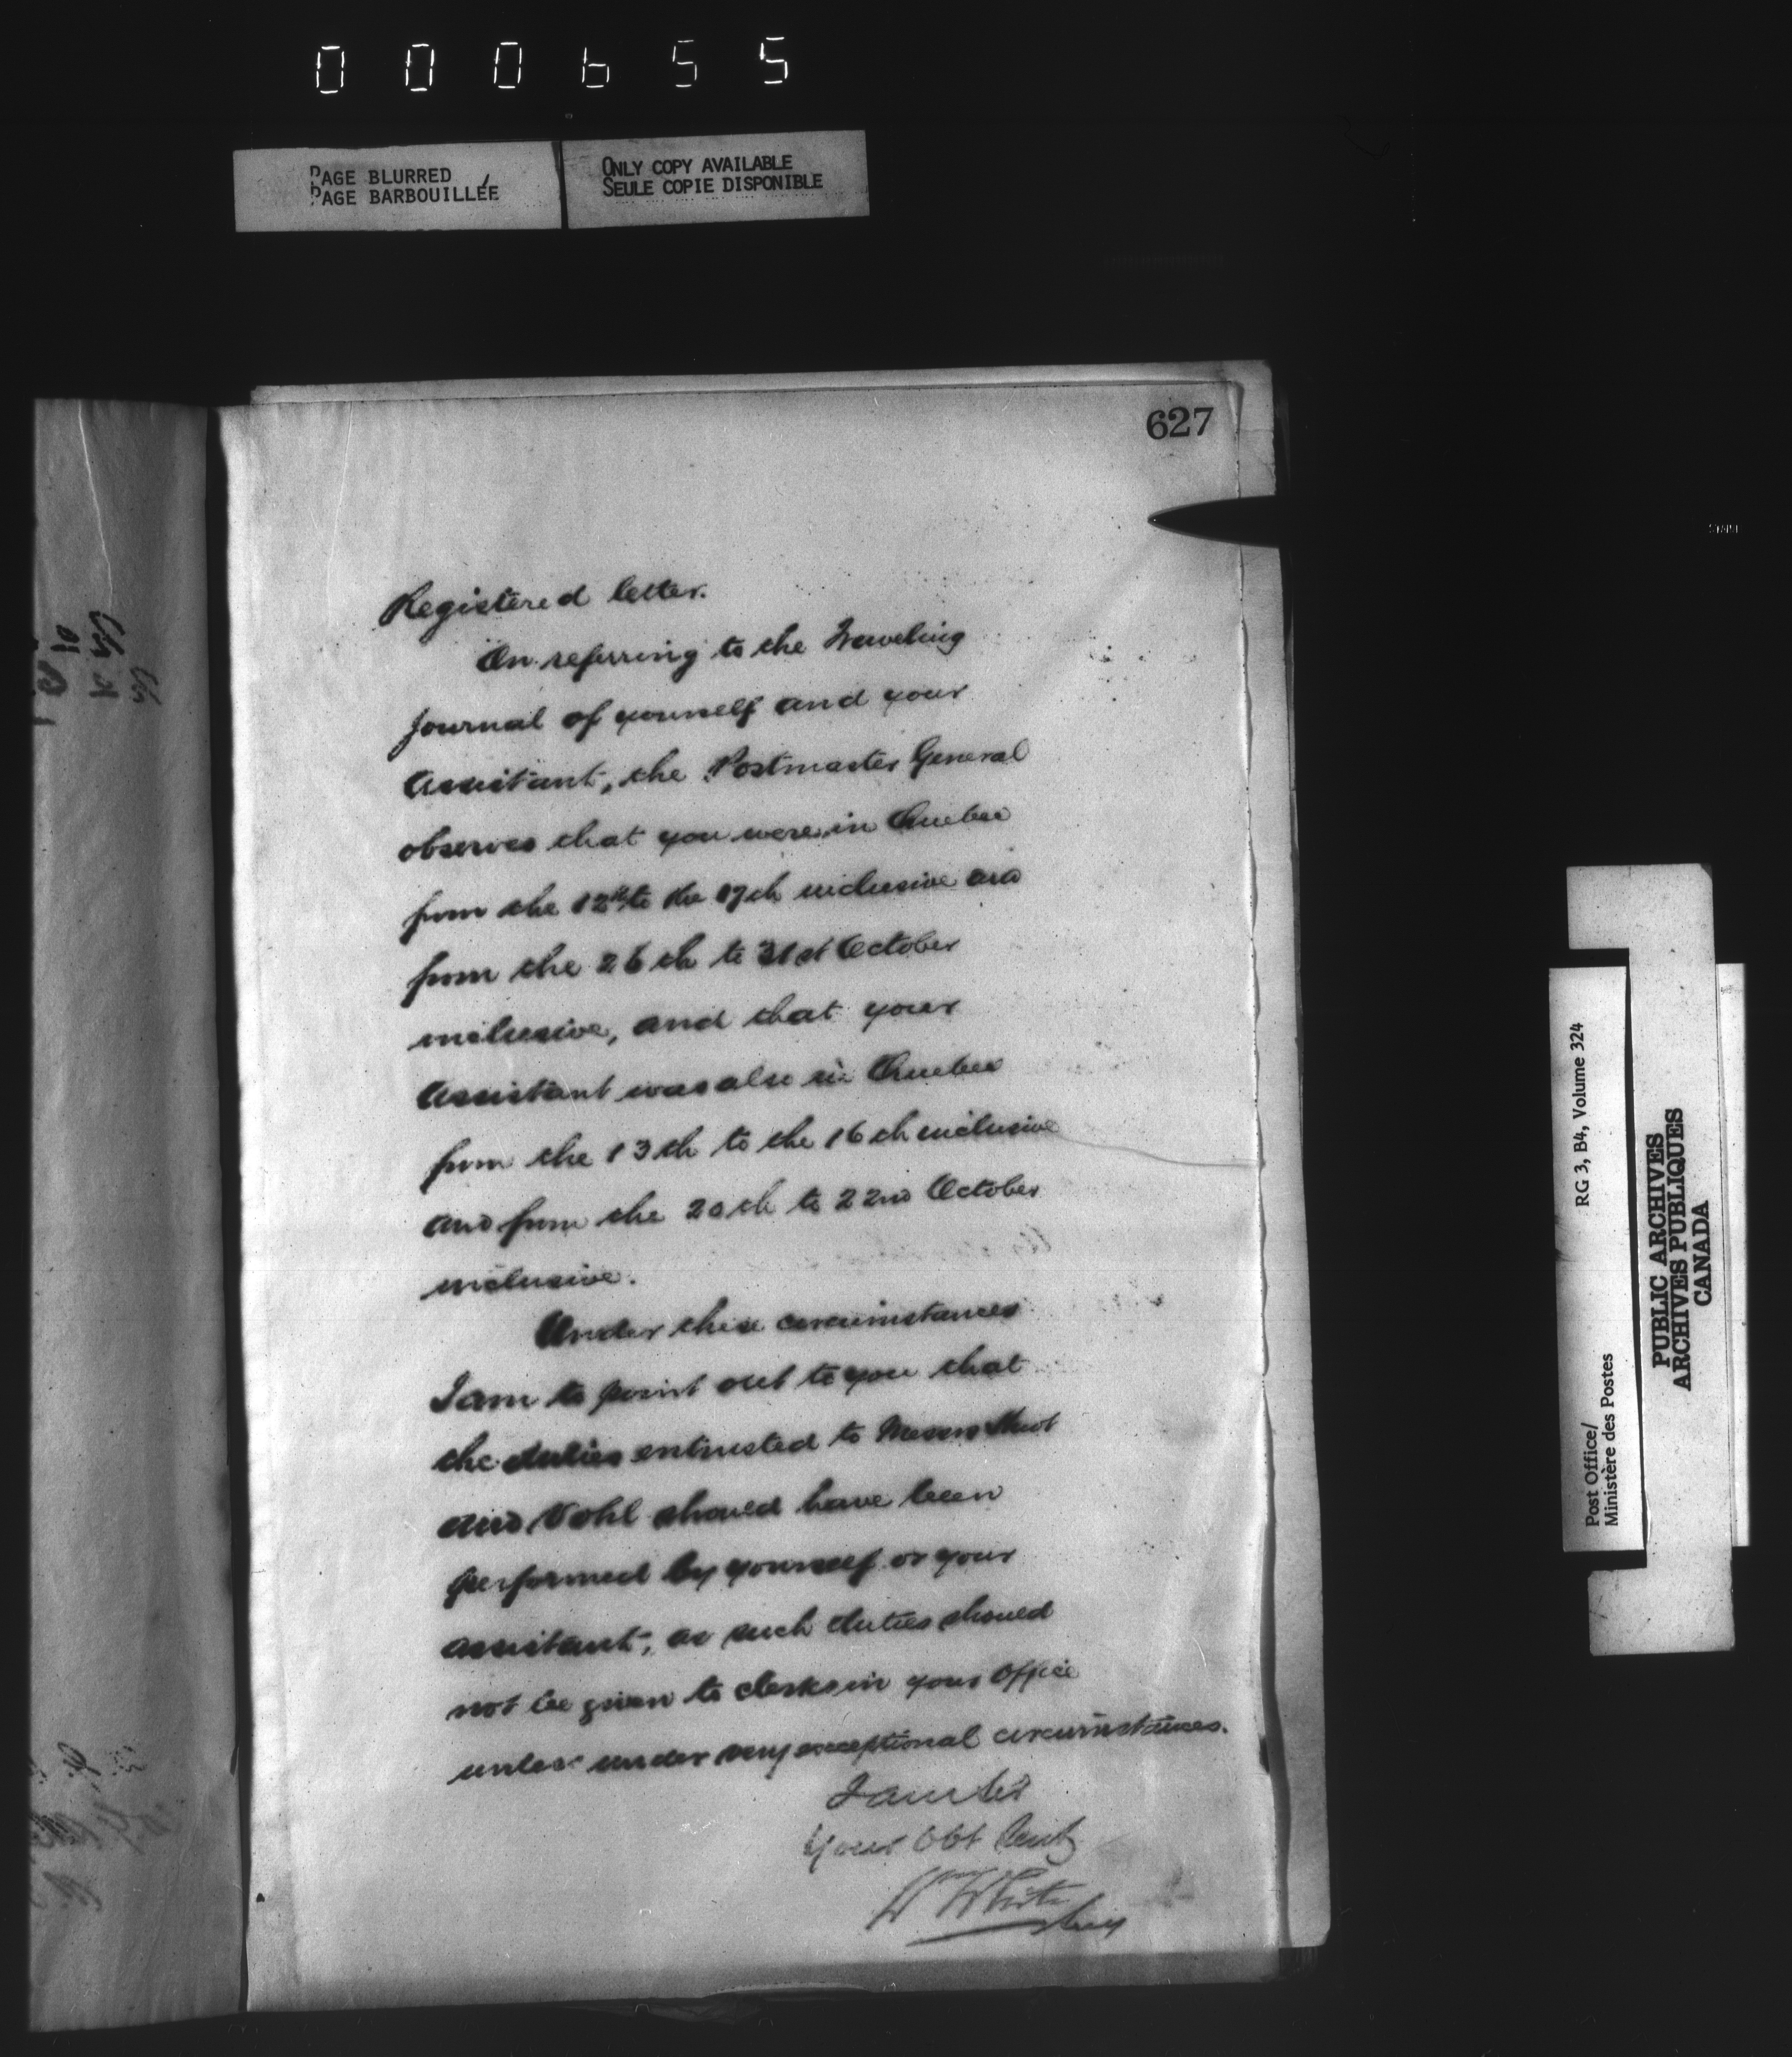 000655
PAGE BLURRED
PAGE BARBOUILLÉE
ONLY COPY AVAILABLE
SEULE COPIE DISPONIBLE
627
Registered letter.
On referring to the Traveling
Journal of yourself and your
Assistant, the Postmaster General
observes that you were in Quebec
from the 12th to the 17th inclusive and
from the 26th to 31st October
inclusive, and that your
Assistant was also in Quebec
from the 13th to the 16th inclusive
and from the 20th to 22nd October
inclusive.
Under these circumstances
I am to point out to you that
the duties entrusted to Messrs
and Vohl should have been
performed by yourself or your
assistant, as such duties should
not be given to clerks in your Office
unless under very exceptional circumstances.
I am Sir
Your Obt Servt
Wm White
Secy
Post Office/
Ministère des Postes
RG 3, B4, Volume 324
PUBLIC ARCHIVES
ARCHIVES PUBLIQUES
CANADA